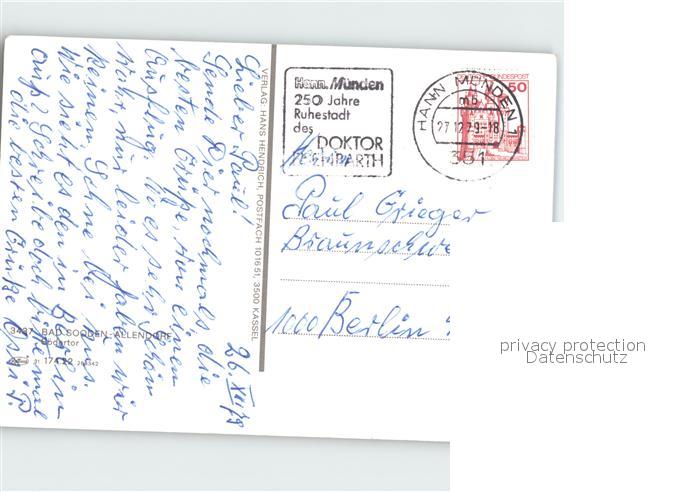 26. XII 79
Lieber Paul!
Sende Dir nochmals die
besten Grüße, von einem
Ausflug. Wo es sehr schön
war, nur leider haben wir
keinen Schnee bei uns.
Wie sieht es den in Berlin
aus? Schreibe doch bitte mal
die besten Grüße
3437 BAD SOODEN-ALLENDORF
Södertor
VERLAG: HANS HENDRICH, POSTFACH 101651, 3500 KASSEL
Hann. Münden
250 Jahre
Ruhestadt
des
DOKTOR
EISENBARTH
HANN MÜNDEN 1
mb
27.12.79-18
351
BUNDESPOST
50
Herrn
Paul Grieger
Braunschwe
1000 Berlin
privacy protection
Datenschutz